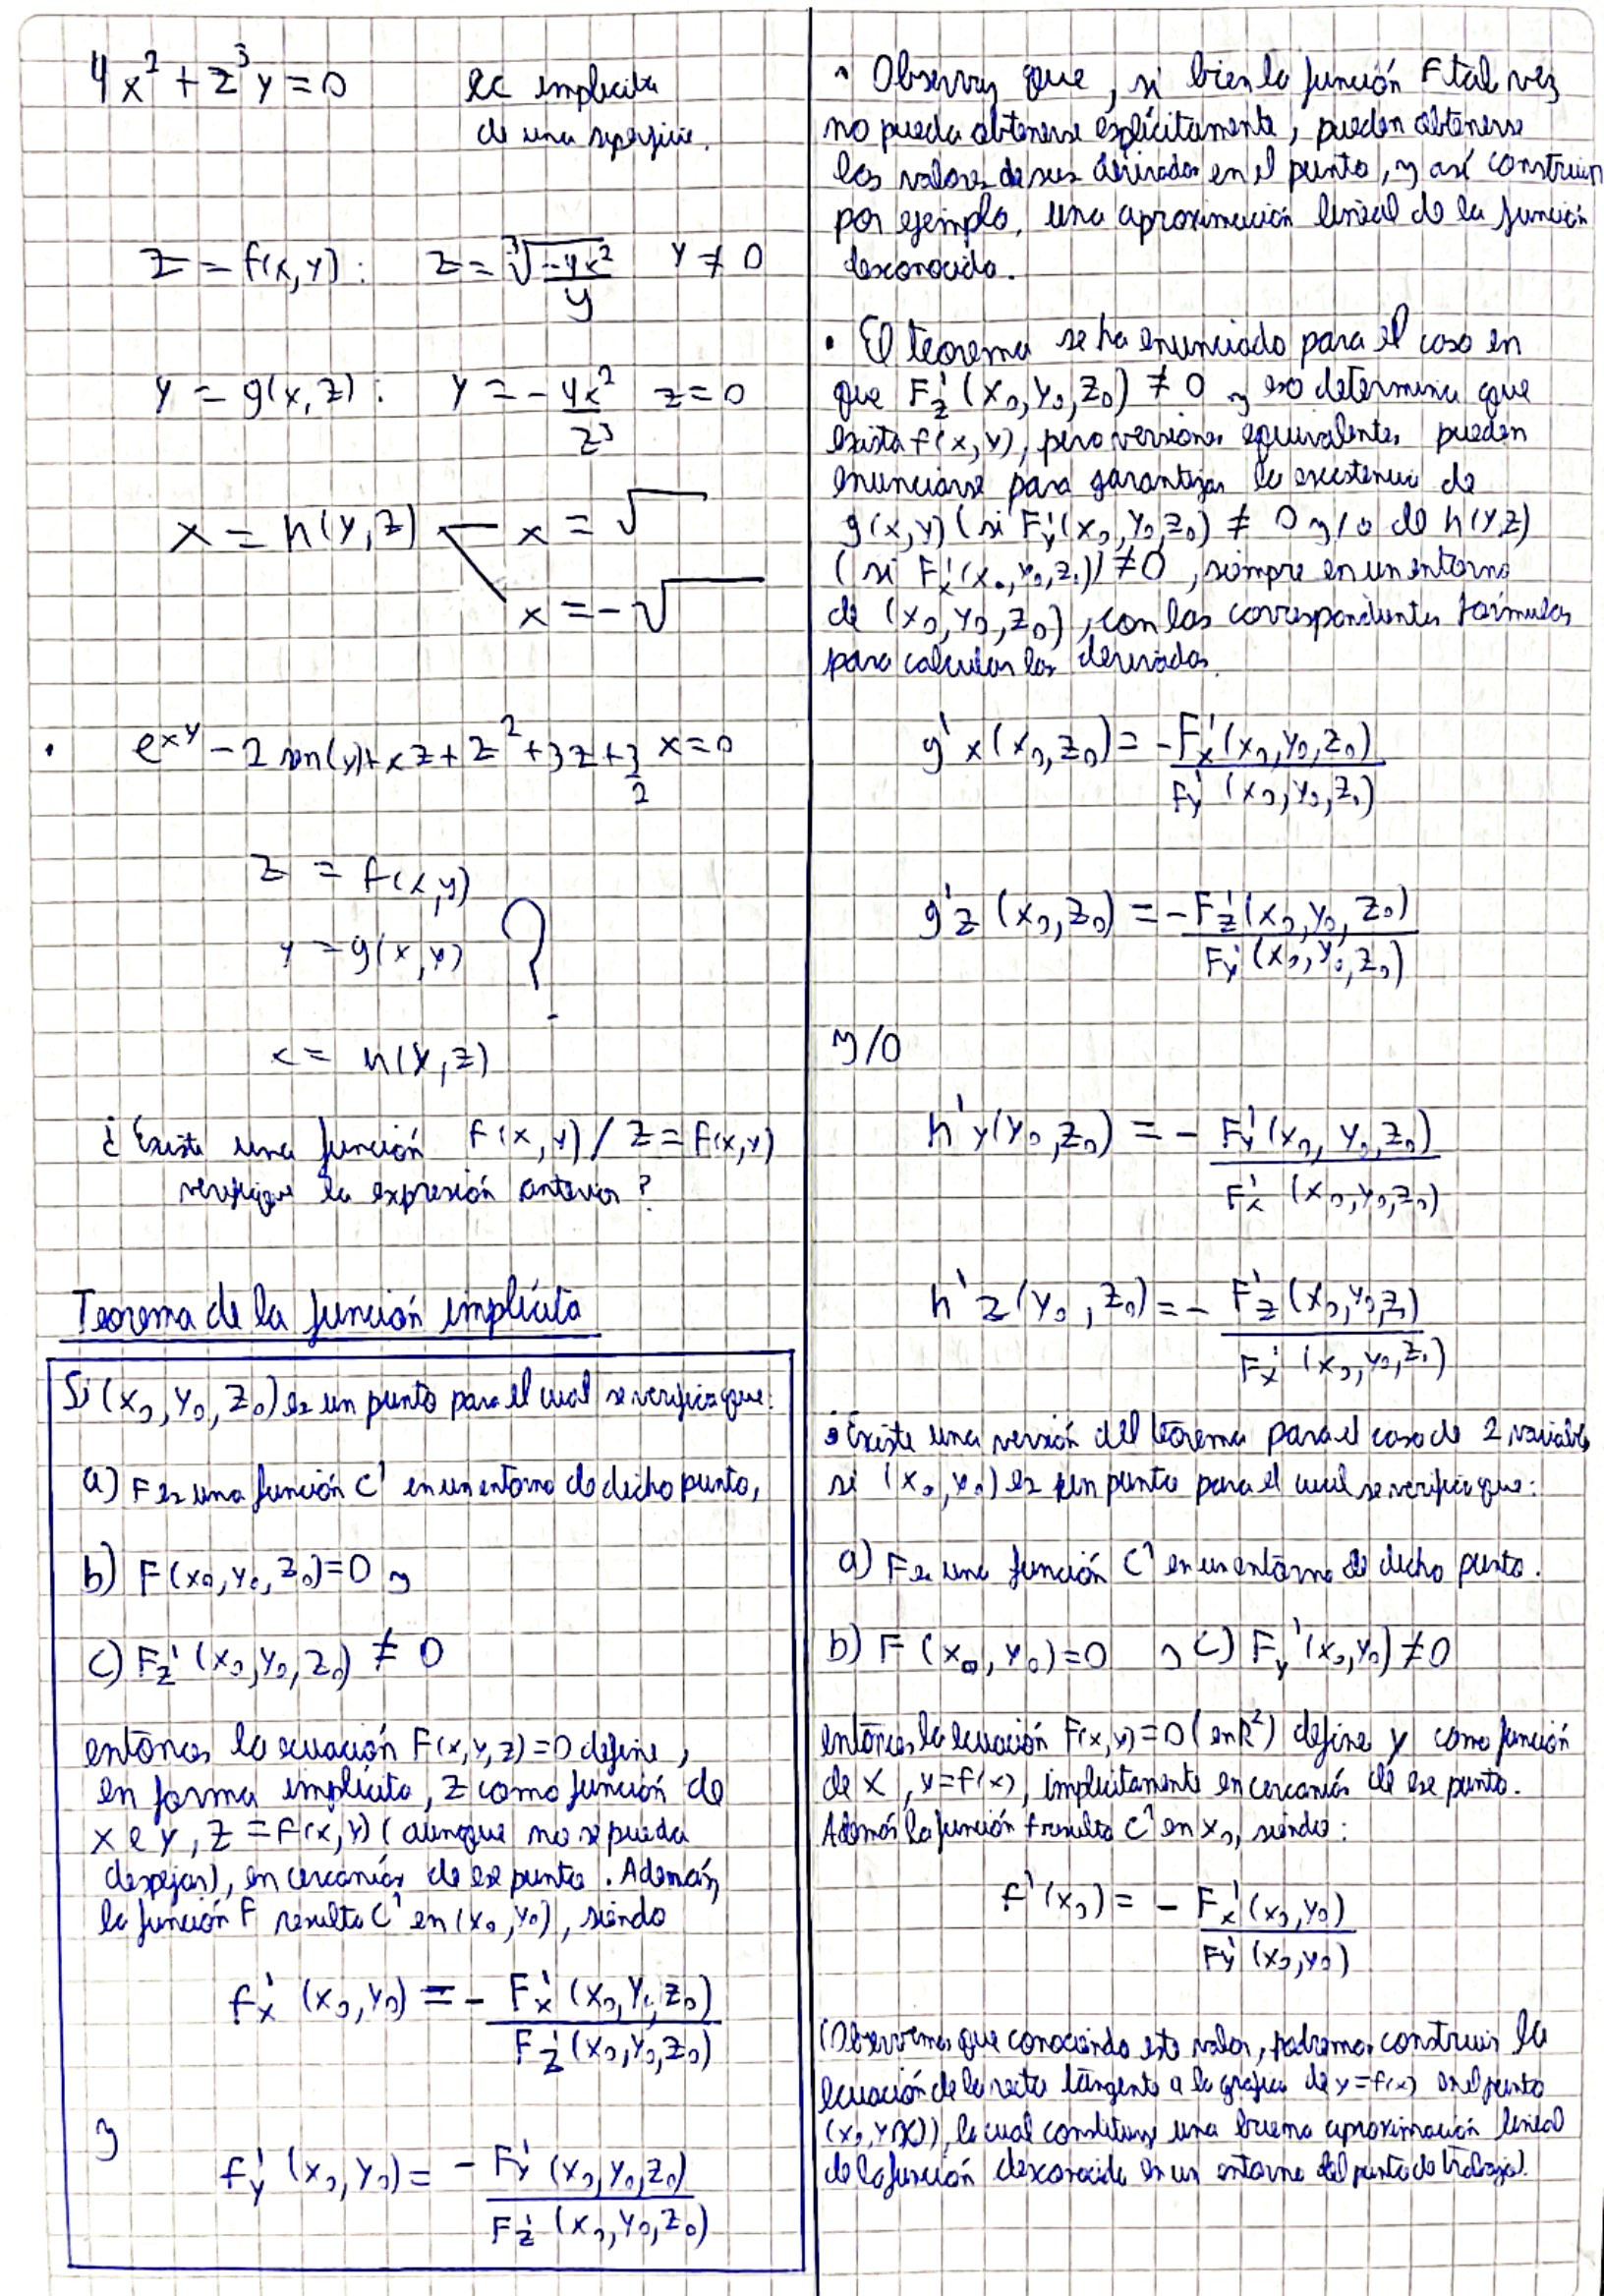 4x² + z³y = 0     ec implicita
de una superficie.
z = f(x,y):   z = ∛(-4x²/y)   y ≠ 0
y = g(x,z):   y = - 4x²/z³   z = 0
x = h(y,z)   x = √
x = -√
• e^xy - 2 sen(y) + xz + z² + 3z + 3/2 x = 0
z = f(x,y)
y = g(x,y)   ?
x = h(y,z)
¿Existe una función f(x,y) / z = f(x,y)
verifique la expresión anterior?
Teorema de la función implícita
Si (x₀, y₀, z₀) es un punto para el cual se verifica que:
a) F es una función C¹ en un entorno de dicho punto,
b) F(x₀, y₀, z₀) = 0 y
c) Fz' (x₀, y₀, z₀) ≠ 0
entonces la ecuación F(x,y,z) = 0 define,
en forma implícita, z como función de
x e y, z = f(x,y) (aunque no se pueda
despejar), en cercanías de ese punto. Además,
la función F resulta C¹ en (x₀, y₀), siendo
fx' (x₀, y₀) = - Fx' (x₀, y₀, z₀) / Fz' (x₀, y₀, z₀)
y
fy' (x₀, y₀) = - Fy' (x₀, y₀, z₀) / Fz' (x₀, y₀, z₀)
• Observar que, si bien la función F tal vez
no pueda obtenerse explícitamente, pueden obtenerse
los valores de sus derivadas en el punto, y así construir
por ejemplo, una aproximación lineal de la función
desconocida.
• El teorema se ha enunciado para el caso en
que Fz' (x₀, y₀, z₀) ≠ 0 y eso determina que
exista f(x,y), pero versiones equivalentes pueden
enunciarse para garantizar la existencia de
g(x,y) (si Fy' (x₀, y₀, z₀) ≠ 0 y/o de h(y,z)
(si Fx' (x₀, y₀, z₀)) ≠ 0, siempre en un entorno
de (x₀, y₀, z₀), con las correspondientes fórmulas
para calcular las derivadas.
g'x (x₀, z₀) = - Fx' (x₀, y₀, z₀) / Fy' (x₀, y₀, z₀)
g'z (x₀, z₀) = - Fz' (x₀, y₀, z₀) / Fy' (x₀, y₀, z₀)
y/o
h'y (y₀, z₀) = - Fy' (x₀, y₀, z₀) / Fx' (x₀, y₀, z₀)
h'z (y₀, z₀) = - Fz' (x₀, y₀, z₀) / Fx' (x₀, y₀, z₀)
• Existe una versión del teorema para el caso de 2 variables
si (x₀, y₀) es un punto para el cual se verifica que:
a) F es una función C¹ en un entorno de dicho punto.
b) F (x₀, y₀) = 0   y c) Fy' (x₀, y₀) ≠ 0
entonces la ecuación F(x,y) = 0 (en R²) define y como función
de x, y = f(x), implícitamente en cercanías de ese punto.
Además la función f resulta C¹ en x₀, siendo:
f'(x₀) = - Fx' (x₀, y₀) / Fy' (x₀, y₀)
(Observemos que conociendo este valor, podremos construir la
ecuación de la recta tangente a la gráfica de y = f(x) en el punto
la cual constituye una buena aproximación lineal
de la función desconocida en un entorno del punto de trabajo).